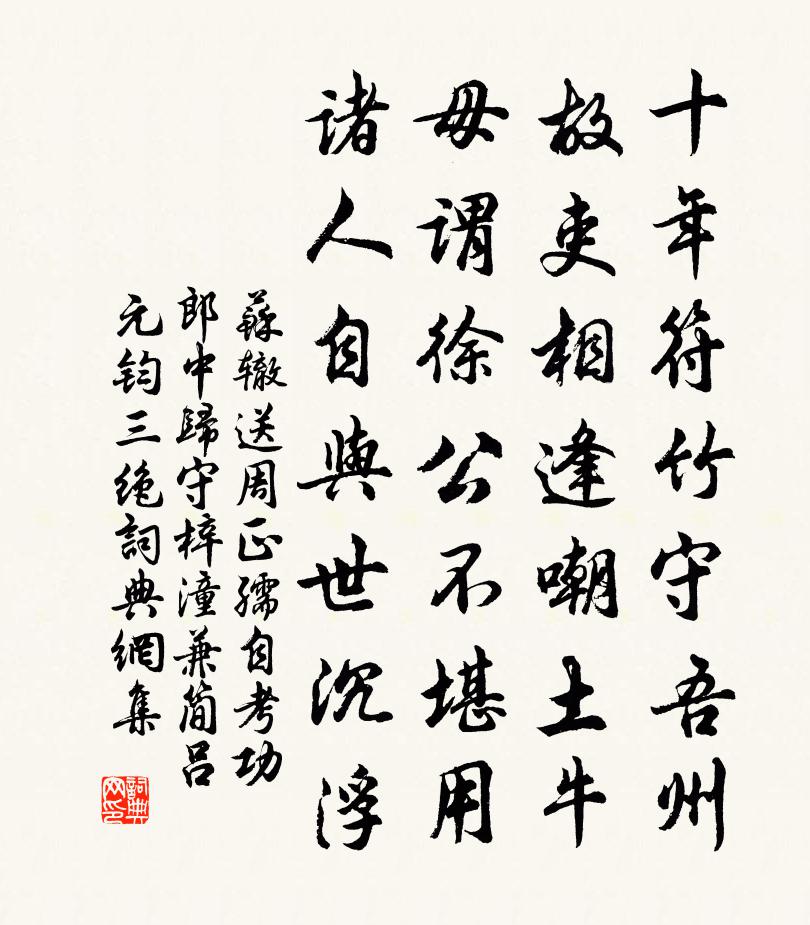 十年符竹守吾州
故吏相逢嘲土牛
毋謂徐公不堪用
諸人自與世沉浮
蘇轍送周正孺自考功
郎中歸守梓潼兼簡呂
元鈞三絕詞典網集
詞典網印